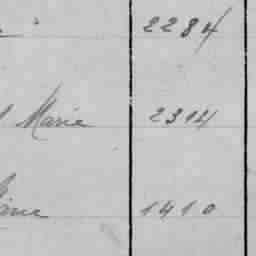 2284
Marie 2314
1410